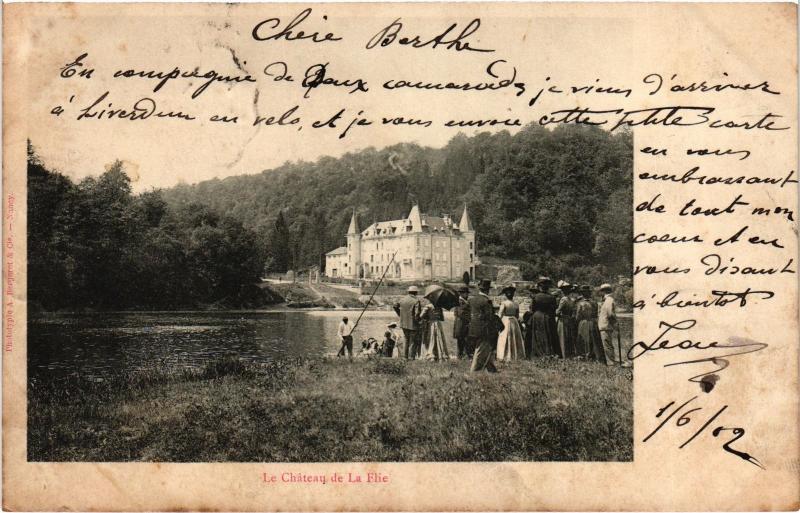 Chère Berthe
En compagnie de Deux camarades, je viens d'arriver
à Liverdun en velo, et je vous envoie cette petite carte
en vous
embrassant
de tout mon
coeur et en
vous disant
à bientot
Jean
1/6/02
Phototypie A. Bergeret & Cie. — Nancy.
Le Château de La Flie